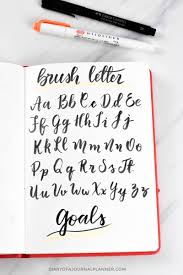 brush letter
Aa Bb Cc Dd Ee
Ff Gg Hh Ii Jj
Kk Ll Mm Nn Oo
Pp Qq Rr Ss Tt
Uu Vv Ww Xx Yy Zz
Goals
DIARYOFAJOURNALPLANNER.COM